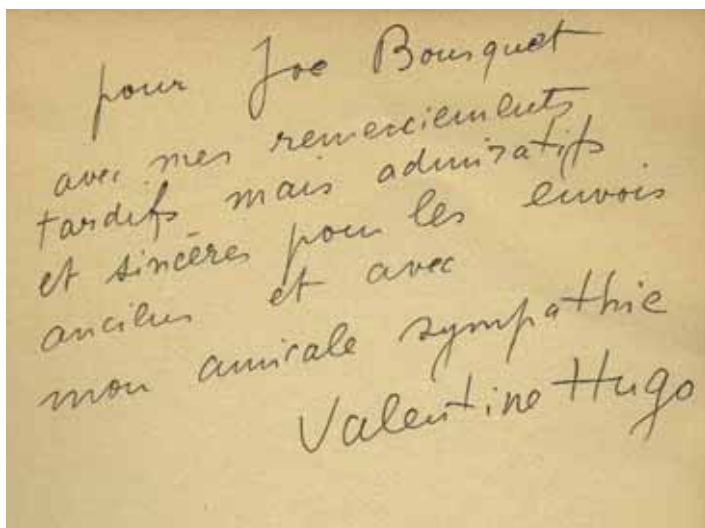 pour Joe Bousquet
avec mes remerciements
tardifs mais admiratifs
et sincères pour les envois
anciens et avec
mon amicale sympathie
Valentine Hugo